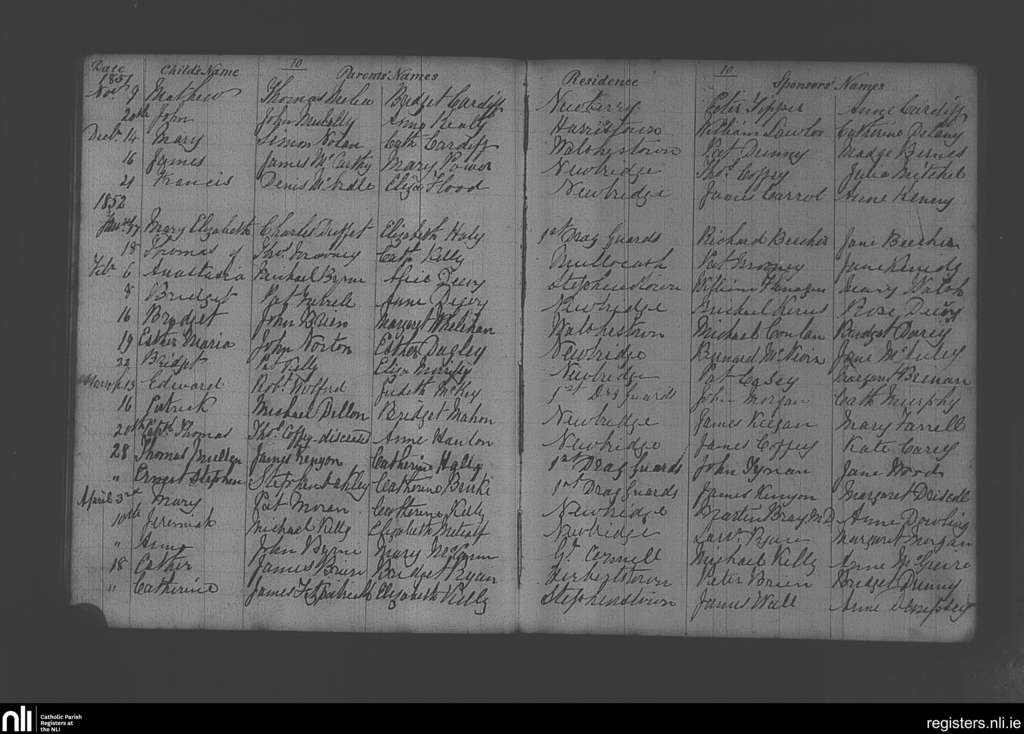 Date Child's Name 10 Parents' Names Residence 10 Sponsors' Names
1851
Novr 9 Mathew Thomas Bridget Cardiff Newberry Peter Tipper Anne Cardiff
20th John John Mulally Anne Healy Harristown William Lawlor Catherine Delany
Decr 14 Mary Simon Nolan Cath Cardiff Walshestown Pat Dunny Madge Bernes
16 James James McCarthy Mary Power Newbridge Thos Coffey Julia Mitchel
21 Francis Denis McArdle Eliza Flood Newbridge James Carrol Anne Kenny
1852
Jany 17 Mary Elizabeth Charles Elizabeth Haly 1st Drag Guards Richard Beecher Jane Beecher
18 Thomas Thos Mooney Cath Kelly Pat Mooney Jane
Feb 6 Anastasia Michael Byrne Alice Stephenstown William Flanagan Mary Walsh
8 Bridget Pat Anne Newbridge Rose
16 Bridget John Brien Margaret Whelehan Walshestown Michael Conlan Bridget Dorey
19 Esther Maria John Norton Esther Dugley Newbridge Bernard Jane
22 Bridget Pat Kelly Eliza Murphy Newbridge Pat Casey Margaret Brenan
March 13 Edward Robt Wolford Judith 1st Drg Guards John Morgan Cath Murphy
16 Patrick Michael Dillon Bridget Mahon Newbridge James Keegan Mary Farrell
20th Thomas Thos Coffey - Anne Hanlon Newbridge James Coffey Kate Carey
28 Thomas James Kenyon Catherine Haly 1st Drag Guards John Jane Woods
" Ernest Stephen Stephen Oakley Catherine Burke 1st Drag Guards James Kenyon Margaret Driscoll
April 3rd Mary Pat Moran Catherine Kelly Newbridge Martin Bray M.D Anne Dowling
10th Jeremiah Michael Kelly Elizabeth Metcalf Newbridge Lawr Margaret Morgan
" Anne John Byrne Mary Gt Connell Michael Kelly Anne McGuire
18 Esther James Brien Bridget Ryan Herbertstown Peter Brien Bridget Dunny
" Catherine James Fitzpatrick Elizabeth Kelly Stephenstown James Wall Anne Dempsey
nli Catholic Parish
Registers at
the NLI
registers.nli.ie